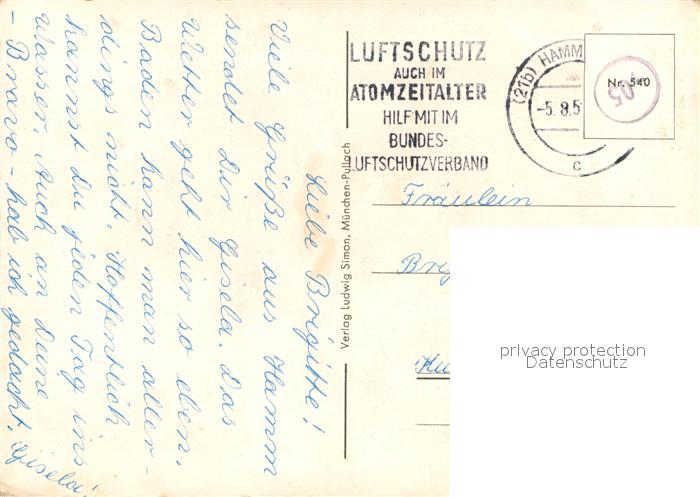 Liebe Brigitte!
Viele Grüße aus Hamm
sendet Dir Gisela. Das
Wetter geht hier so eben.
Baden kann man aller-
dings nicht. Hoffentlich
kannst du jeden Tag ins
Wasser. Auch an Deine
- Bravo - hab ich gedacht!
Gisela!
Verlag Ludwig Simon, München-Pullach
LUFTSCHUTZ
AUCH IM
ATOMZEITALTER
HILF MIT IM
BUNDES-
LUFTSCHUTZVERBAND
(21b) HAMM
-5. 8.5
c
Nr. 540
05
Fräulein
privacy protection
Datenschutz